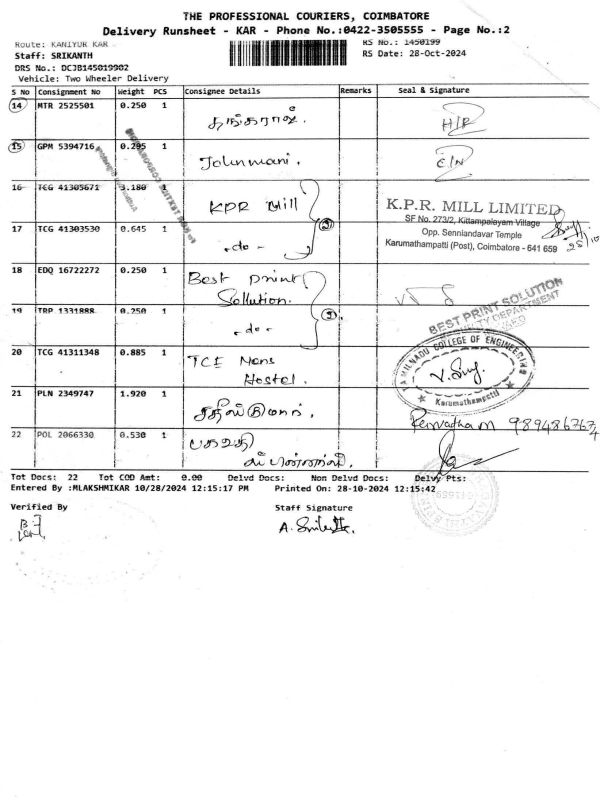 THE PROFESSIONAL COURIERS, COIMBATORE
Delivery Runsheet - KAR - Phone No.:0422-3505555 - Page No.:2
Route: KANIYUR KAR
RS No.: 1450199
Staff: SRIKANTH
RS Date: 28-Oct-2024
DRS No.: DCJB145019902
Vehicle: Two Wheeler Delivery
S No Consignment No Weight PCS Consignee Details Remarks Seal & Signature
14 MTR 2525501 0.250 1 தங்கராஜ். H/P
15 GPM 5394716 0.205 1 Johnmani. C/N
16 TCG 41305671 3.180 1 KPR Mill
K.P.R. MILL LIMITED
SF No. 273/2, Kittampalayam Village
Opp. Senniandavar Temple
Karumathampatti (Post), Coimbatore - 641 659
28/10
17 TCG 41303530 0.645 1 -do- 2
18 EDQ 16722272 0.250 1 Best print
Sollution.
BEST PRINT SOLUTION
19 TRP 1331888 0.250 1 -do- 2
20 TCG 41311348 0.885 1 TCE Mens
Hostel.
TAMILNADU COLLEGE OF ENGINEERING
Karumathampatti
21 PLN 2349747 1.920 1
9894867634
22 POL 2066330 0.530 1 பகவதி
Tot Docs: 22 Tot COD Amt: 0.00 Delvd Docs: Non Delvd Docs: Delvy Pts:
Entered By :MLAKSHMIKAR 10/28/2024 12:15:17 PM Printed On: 28-10-2024 12:15:42
Verified By Staff Signature